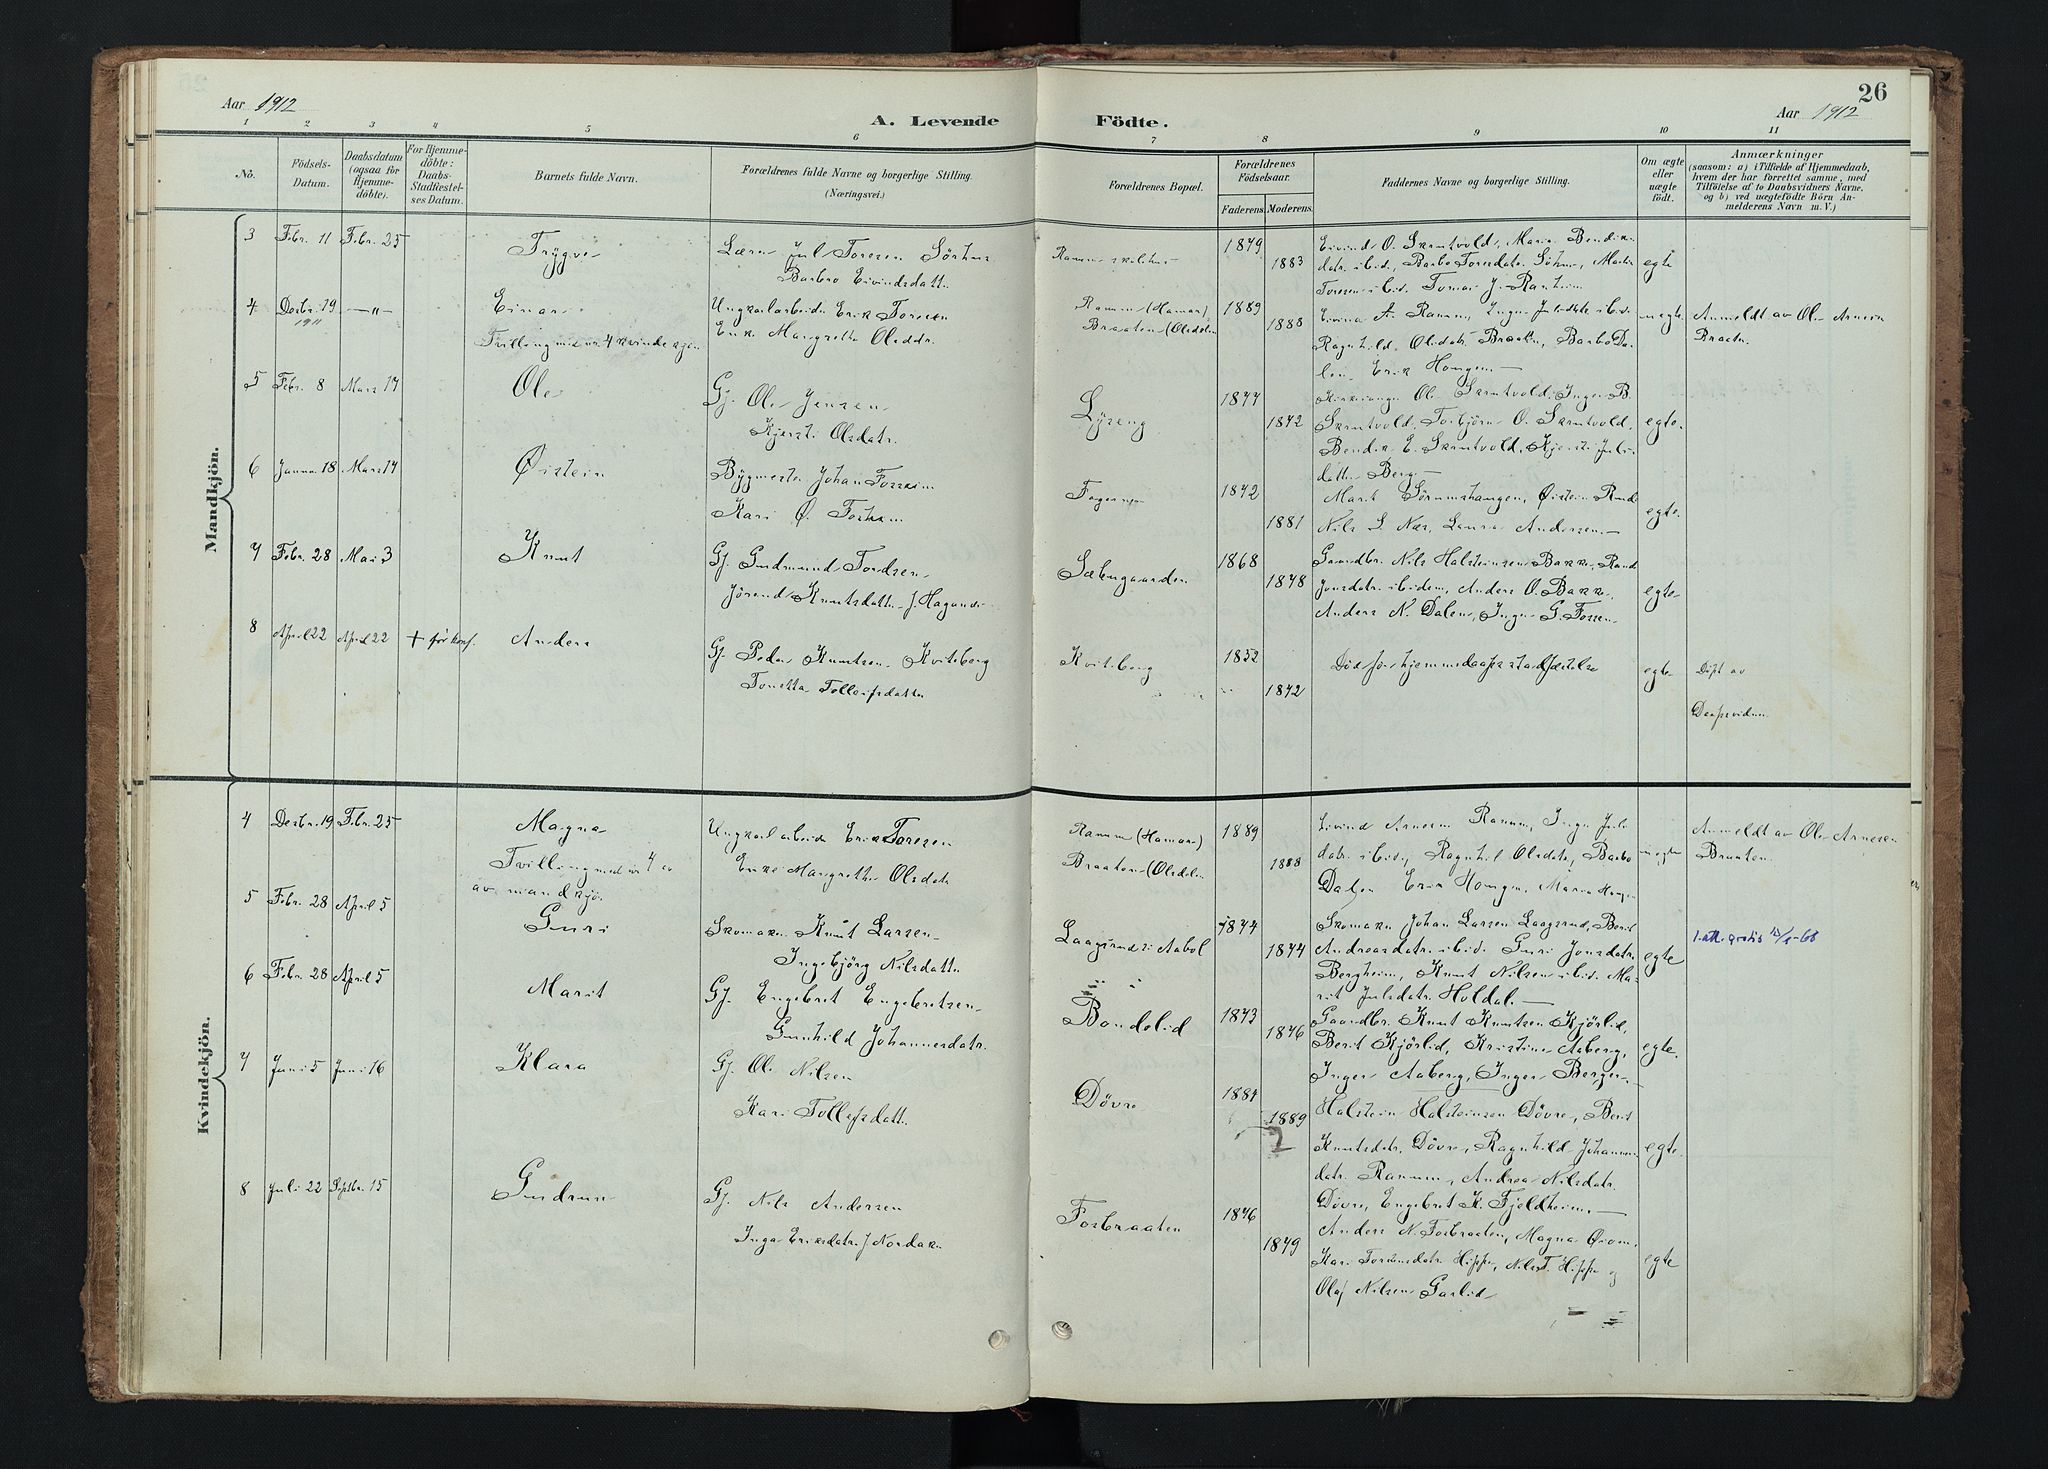 26
Aar 1912
A. Levende Födte.
Aar 1912
1 2 3 4 5 6 7 8 9 10 11
No.
Födsels-Datum.
Daabsdatum (ogsaa for Hjemmedöbte).
For Hjemmedöbte: Daabs-Stadfæstelses Datum.
Barnets fulde Navn.
Forældrenes fulde Navne og borgerlige Stilling.
(Næringsvei.)
Forældrenes Bopæl.
Forældrenes Födselsaar.
Faderens. Moderens.
Faddernes Navne og borgerlige Stilling.
Om ægte eller uægte født.
Anmærkninger
(saasom: a) i Tilfælde af Hjemmedaab,
hvem der har forrettet samme, med
Tilföielse af to Daabsvidners Navne,
og b) ved uægtefödte Börn An-
melderens Navn m. V.)
Mandkjön.
3 Febr. 11 Febr. 25 Trygve
Jul Toresen
Barbro Eivindsdatter
1879
1883
Eivind O. Skrutvold, Marie Bendiks
datr. ibid., Barbo Toresdatr.
Toresen ibid. Tomas J.
egte
4 Desbr. 19 —"—
1911
Einar
Tvilling med nr. 4 kvindekjøn
Ungkarlarbeider Erik Toresen
Enke Margrethe Olsdtr.
Ramm (Hamar)
Braaten (Olsdalen
1889
1888
Ragnhild Olsdatr. Braaten, Barbo Da-
len, Erik Haugen —
uegte
Anmeldt av Ole Arnesen
Braaten.
5 Febr. 8 Mars 17 Ole
Gj. Ole Jensen
Kjersti Olsdatr.
Lyseng
1877
1872
Ole Skrutvold, Inger B.
Skrutvold, Torbjørn O. Skrutvold,
Bendik E. Skrutvold, Kjersti Juls-
datter Berg —
egte.
6 Janua. 18 Mars 17 Øistein
Bygmester Johan Fosseim
Kari Ø.
1872
1881
Marit Sørumshaugen, Øistein
Nils S. Næs, Laura Andersen —
egte.
7 Febr. 28 Mai 3 Knut
Gj. Gudmund Tordsen
Jörend Knutsdatter
Sæbugaarden
1868
1878
Gaardbr. Nils Halsteinsen Bakke, Rand
Jonsdatr. ibidem, Anders O. Bakke,
Anders N. Dalen, Inger G. Fossen
egte
8 April 22 April 22 + før konf.
Anders
Gj. Peder Knutsen Kviteberg
Tonetta Tollefsdatter
Kviteberg
1852
1872
Död for hjemmedaapsstadfæstelse
egte
Döpt av
Kvindekjön.
4 Desbr. 19 Febr. 25 Magna
Tvilling med nr 4 av
av mandkjø.
Ungkarl arbeider Erik Toresen
Enke Margrethe Olsdatr.
Ramm (Hamar)
Braaten (Olsdalen
1889
1888
Eivind Arnesen Ramm, Inger Juls
datr. ibid., Ragnhil Olsdatr., Barbo
Dalen Erik Haugen, Maria Haugen
uegte
Anmeldt av Ole Arnesen
Braaten.
5 Febr. 28 April 5 Guri
Skomaker Knut Larsen
Ingebjörg Nilsdatter
Laagsrud i Aabol
1874
1874
Skomaker Johan Larsen Laagsrud, Berit
Andreasdatr. ibid. Guri Jonsdatr.
Bergheim, Knut Nilsen ibid. Ma-
rit Julsdatr. Holdal. —
egte
1 att. gratis
6 Febr. 28 April 5 Marit
Gj. Engebret Engebretsen
Gunhild Johannesdatr.
Bondelid
1873
1876
Gaardbr. Knut Knutsen Kjörlid,
Berit Kjörlid, Kristine Aaberg,
Inger Aaberg, Inger Bergen —
egte.
7 Juni 5 Juni 16 Klara
Gj. Ole Nilsen
Kari Tollefsdatter
Dövre
1881
1889
Halstein Halsteinsen Dövre, Berit
Knutsdatr. Dövre, Ragnhild Johannes
datr. Ramm, Andrea Nilsdatr.
Dövre, Engebret K. Fjeldheim —
egte.
8 Juli 22 Septbr. 15 Gudrun
Gj. Nils Andersen
Inga Eriksdatr. f. Nordaker
Fosbraaten
1876
1879
Anders N. Fosbraaten, Magna
Kari Torsteinsdatr. Hippe, Nils T. Hippe og
Olaf Nilsen Garlid
egte